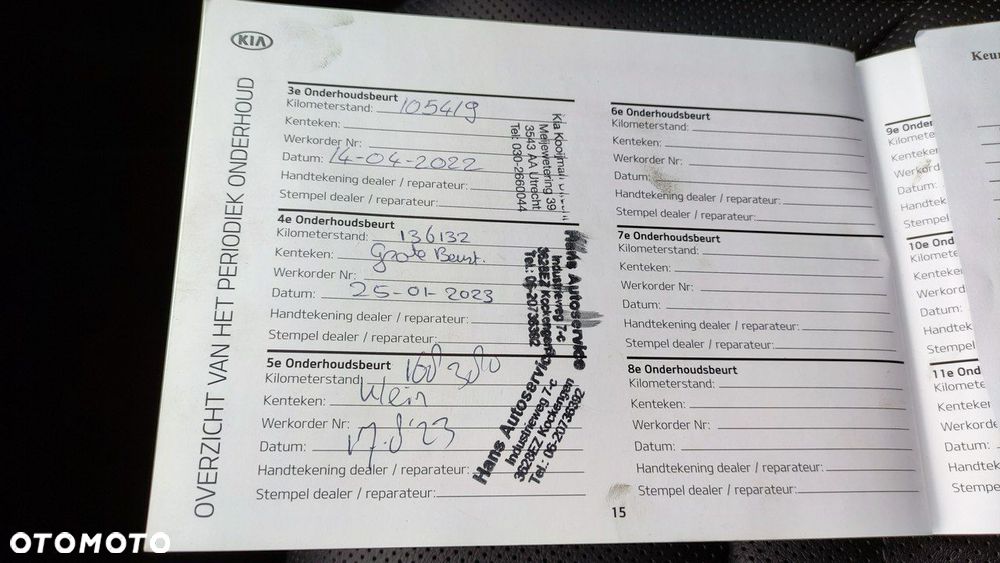 KIA
OVERZICHT VAN HET PERIODIEK ONDERHOUD
3e Onderhoudsbeurt
Kilometerstand: 105419
Kenteken:
Werkorder Nr:
Datum: 14-04-2022
Handtekening dealer / reparateur:
Stempel dealer / reparateur:
Kia Kooijman
Meijewetering 39
3543 AA Utrecht
Tel: 030-2660044
4e Onderhoudsbeurt
Kilometerstand: 136132
Kenteken: Grote Beurt.
Werkorder Nr:
Datum: 25-01-2023
Handtekening dealer / reparateur:
Stempel dealer / reparateur:
Hans Autoservice
Industrieweg 7-c
3628EZ Kockengen
Tel.: 06-20736392
5e Onderhoudsbeurt
Kilometerstand:
Kenteken: Klein
Werkorder Nr:
Datum: 17.8'23
Handtekening dealer / reparateur:
Stempel dealer / reparateur:
Hans Autoservice
Industrieweg 7-c
3628EZ Kockengen
Tel.: 06-20736392
6e Onderhoudsbeurt
Kilometerstand:
Kenteken:
Werkorder Nr:
Datum:
Handtekening dealer / reparateur:
Stempel dealer / reparateur:
7e Onderhoudsbeurt
Kilometerstand:
Kenteken:
Werkorder Nr:
Datum:
Handtekening dealer / reparateur:
Stempel dealer / reparateur:
8e Onderhoudsbeurt
Kilometerstand:
Kenteken:
Werkorder Nr:
Datum:
Handtekening dealer / reparateur:
Stempel dealer / reparateur:
15
9e Onder
Kilomete
Kenteker
Werkord
Datum:
Handtek
Stempel
10e Ond
Kilomete
Kenteke
Werkord
Datum:
Handtek
Stempel
11e Ond
Kilomete
Kenteker
Werkord
Datum:
Handtek
Stempe
Keur
OTOMOTO